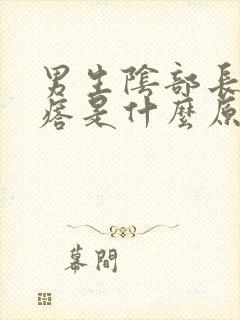 男生陰部長
痞是什麼原
幕間